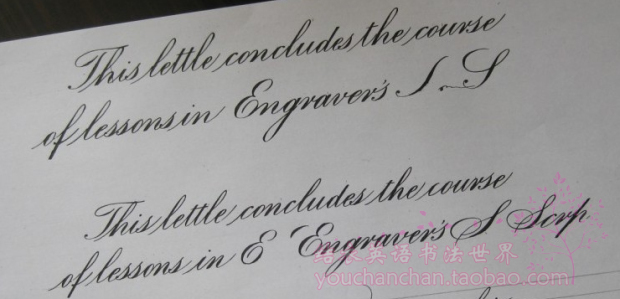 This lettle concludes the course
of lessons in Engraver's S S
This lettle concludes the course
of lessons in E Engraver's S Scrp
英语书法世界
youchanchan.taobao.com